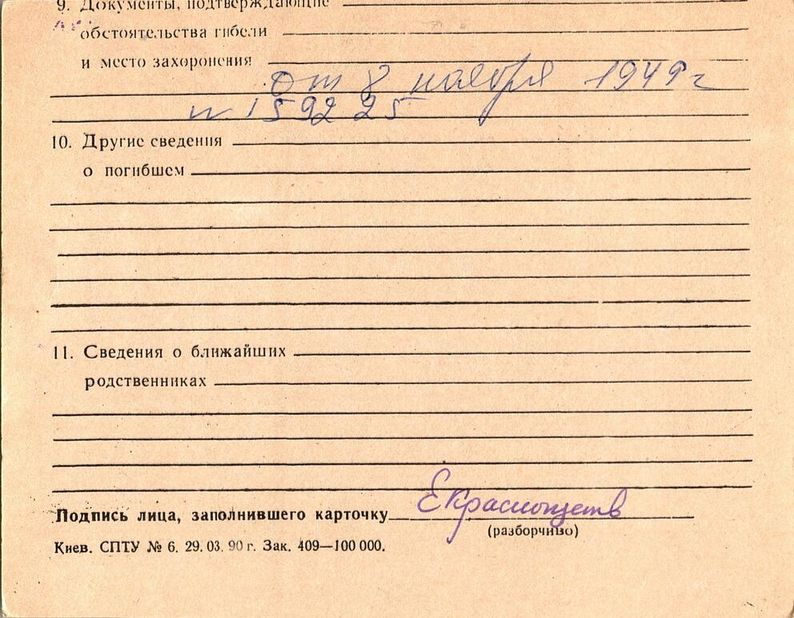 9. Документы, подтверждающие
обстоятельства гибели
и место захоронения
От 8 ноября 1949 г
н 1592 25
10. Другие сведения
о погибшем
11. Сведения о ближайших
родственниках
Подпись лица, заполнившего карточку
(разборчиво)
Киев. СПТУ № 6. 29. 03. 90 г. Зак. 409—100 000.